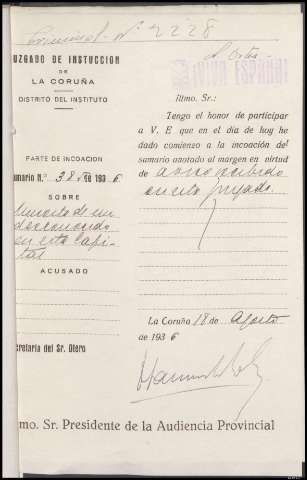 Criminal - Nº 2228
UZGADO DE INSTUCCION
DE
LA CORUÑA
DISTRITO DEL INSTITUTO
PARTE DE INCOACION
umario N.º 38 de 1936
SOBRE
Muerte de un
desconocido
en esta Capi-
tal
ACUSADO
cretaria del Sr. Otero
Iltmo. Sr.:
Tengo el honor de participar
a V. E que en el día de hoy he
dado comienzo a la incoación del
sumario anotado al margen en virtud
de aviso recibido
en este juzgado.
La Coruña 18 de Agosto
de 1936
mo. Sr. Presidente de la Audiencia Provincial